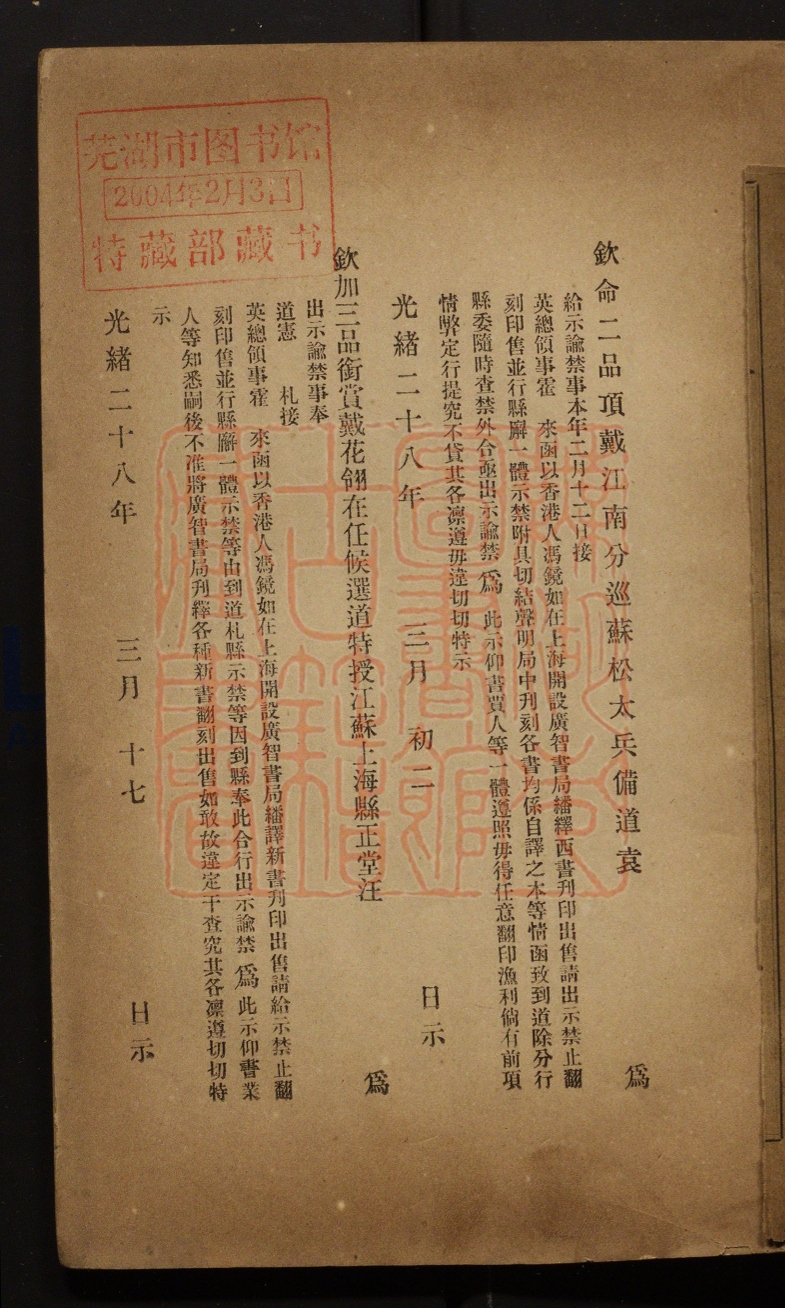 欽命二品頂戴江南分巡蘇松太兵備道袁 爲
給示諭禁事本年二月十二日接
英總領事霍 來函以香港人馮鏡如在上海開設廣智書局繙譯西書刊印出售請出示禁止翻
刻印售並行縣廨一體示禁附具切結聲明局中刊刻各書均係自譯之本等情函致到道除分行
縣委隨時查禁外合亟出示諭禁爲此示仰書賈人等一體遵照毋得任意翻印漁利倘有前項
情弊定行提究不貸其各凛遵毋違切切特示
光緒二十八年 三月 初二 日示
欽加三品銜賞戴花翎在任候選道特授江蘇上海縣正堂汪 爲
出示諭禁事奉
道憲 札接
英總領事霍 來函以香港人馮鏡如在上海開設廣智書局繙譯新書刊印出售請給示禁止翻
刻印售並行縣廨一體示禁等由到道札縣示禁等因到縣奉此合行出示諭禁爲此示仰書業
人等知悉嗣後不准將廣智書局刊繹各種新書翻刻出售如敢故違定干查究其各凛遵切切特
示
光緒二十八年 三月 十七 日示
芜湖市图书馆
2004年2月3日
特藏部藏书